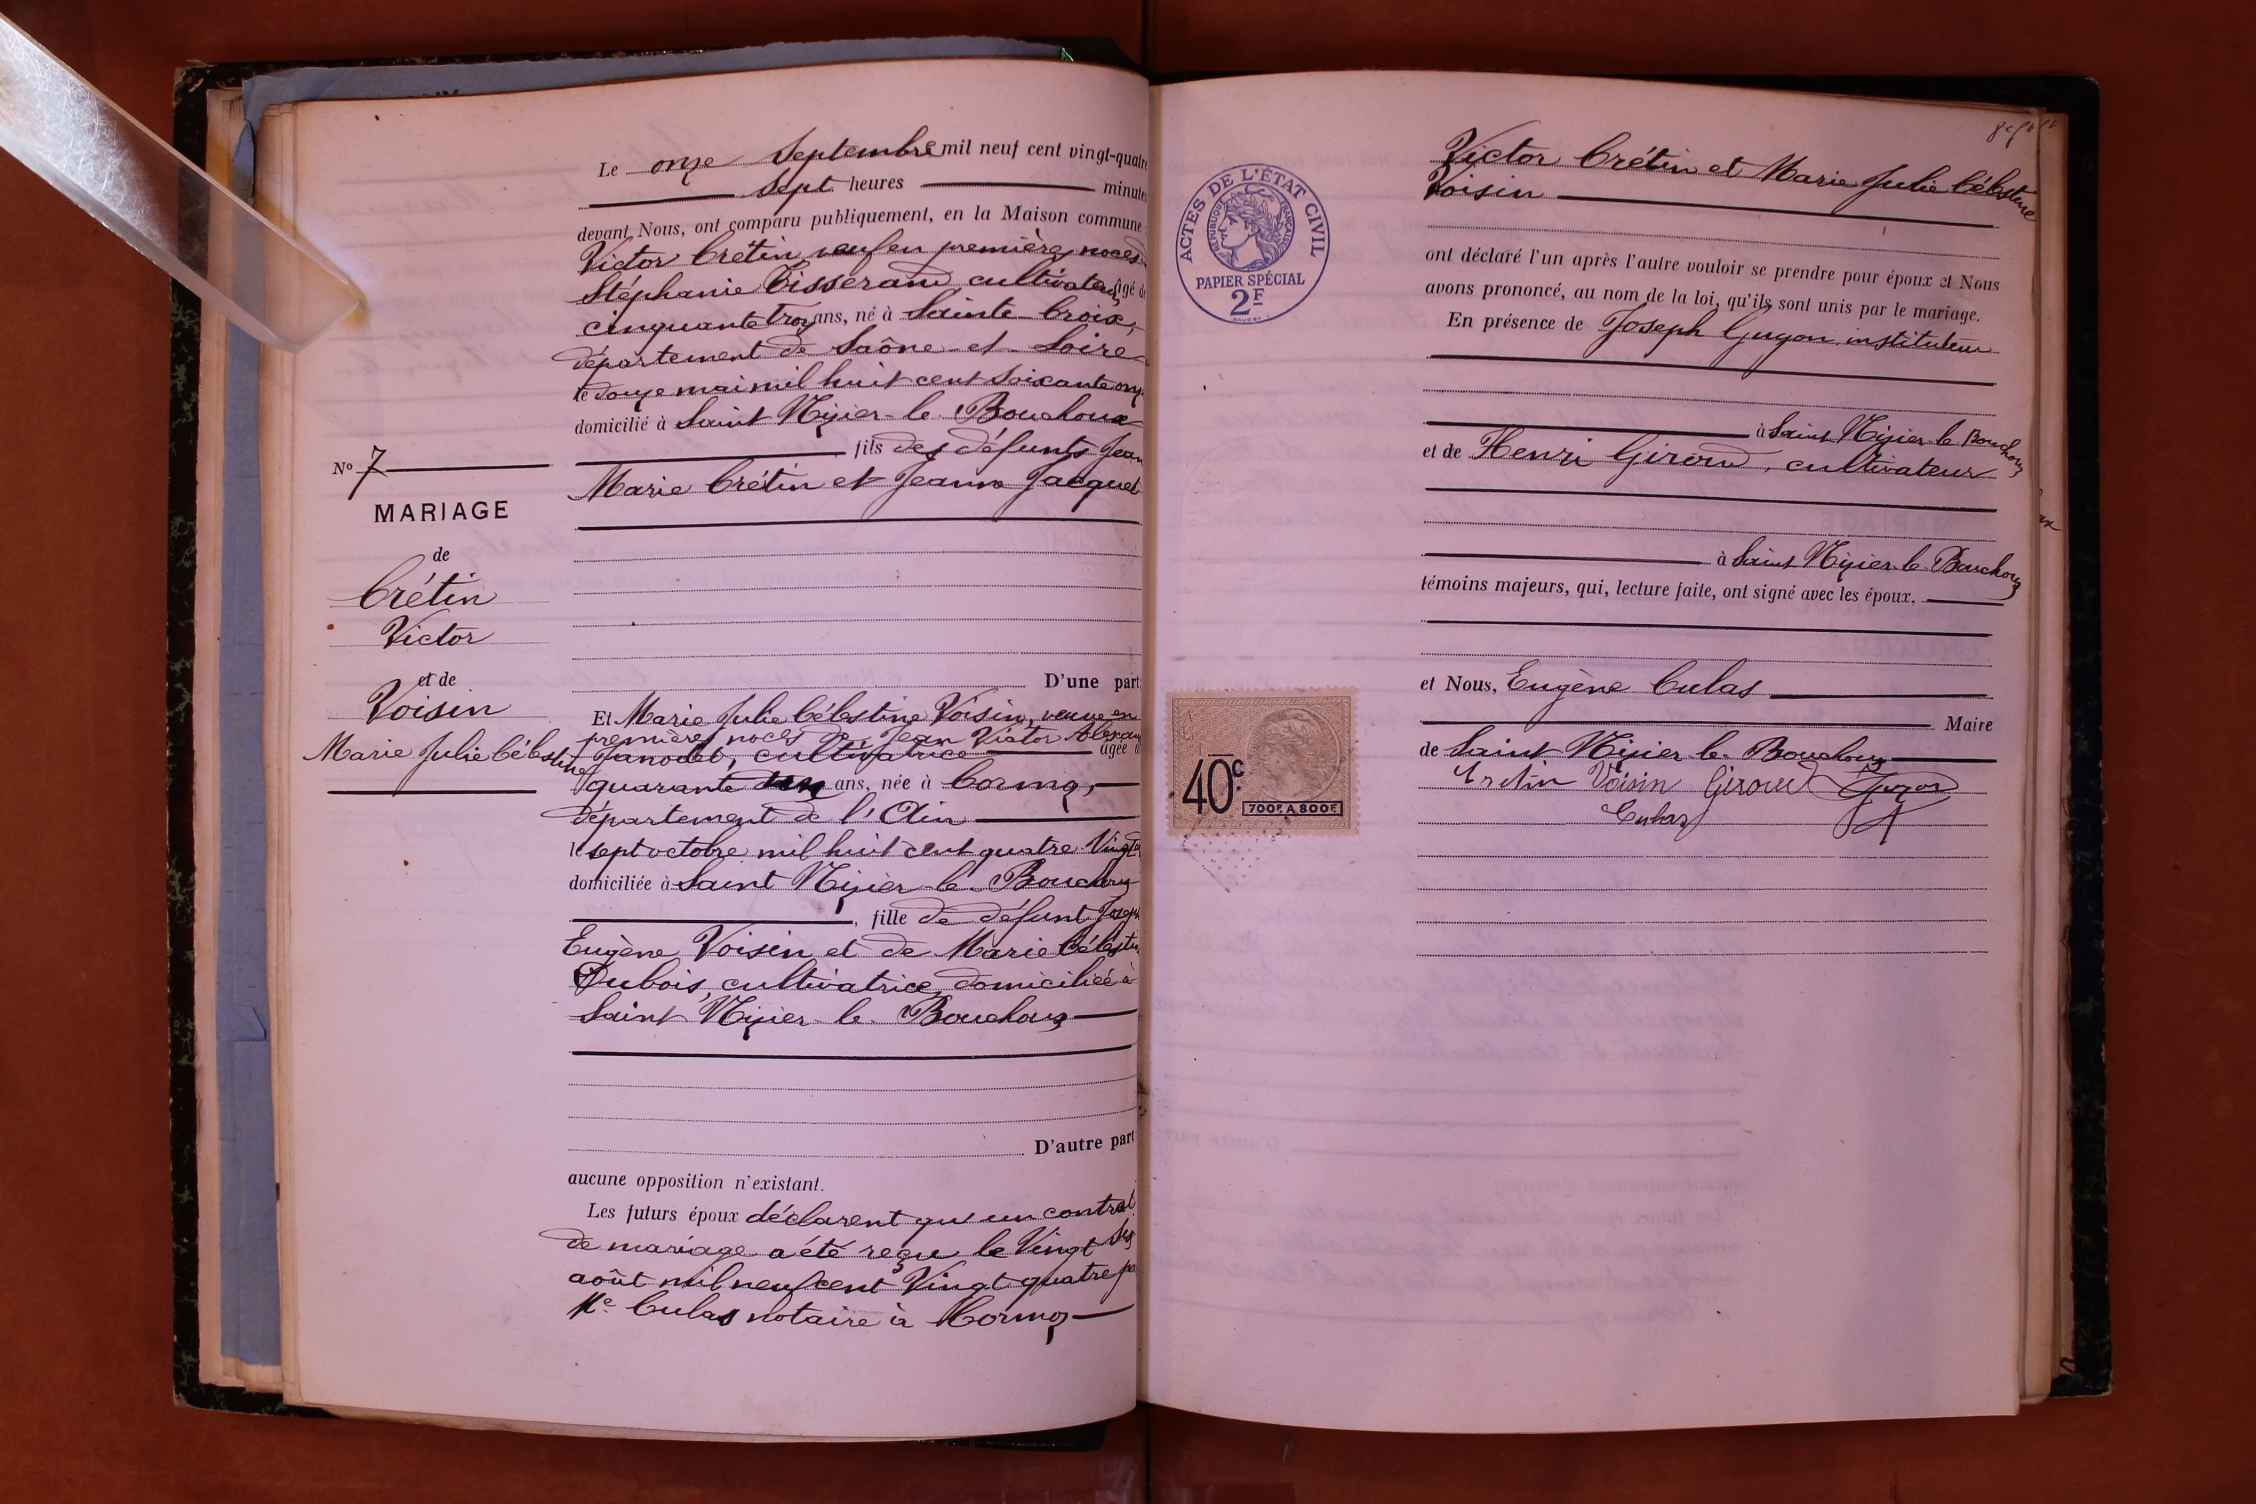 Le onze Septembre mil neuf cent vingt-quatre
sept heures minutes
devant Nous, ont comparu publiquement, en la Maison commune
Victor Crétin veuf en premières noces de
Stéphanie Tisserand cultivateur, âgé de
cinquante trois ans, né à Sainte-Croix,
département de Saône-et-Loire
le douze mai mil huit cent soixante onze
domicilié à Saint Nizier-le-Bouchoux
fils des défunts Jean
Marie Crétin et Jeanne Jacquet
D'une part
Nº 7
MARIAGE
de
Crétin
Victor
et de
Voisin
Marie Julie Célestine
Et Marie Julie Célestine Voisin, veuve en
premières noces de Jean Victor
Janodet, cultivatrice âgée de
quarante ans, née à Cormoz,
département de l'Ain
le sept octobre mil huit cent quatre Vingt
domiciliée à Saint Nizier-le-Bouchoux
, fille de défunt Joseph
Eugène Voisin et de Marie Célestine
Dubois, cultivatrice, domiciliée à
Saint Nizier-le-Bouchoux
D'autre part
aucune opposition n'existant.
Les futurs époux déclarent qu'un contrat
de mariage a été reçu le Vingt six
août mil neuf cent Vingt quatre par
Me Culas notaire à Cormoz
ACTES DE L'ÉTAT CIVIL
RÉPUBLIQUE FRANÇAISE
PAPIER SPÉCIAL
2F
40c
700F. A 800F.
Victor Crétin et Marie Julie Célestine
Voisin
ont déclaré l'un après l'autre vouloir se prendre pour époux et Nous
avons prononcé, au nom de la loi, qu'ils sont unis par le mariage.
En présence de Joseph Guyon instituteur
à Saint Nizier-le-Bouchoux
et de Henri Giroud, cultivateur
à Saint Nizier-le-Bouchoux
témoins majeurs, qui, lecture faite, ont signé avec les époux.
et Nous, Eugène Culas
Maire
de Saint Nizier-le-Bouchoux
Cretin Voisin Giroud Guyon
Culas